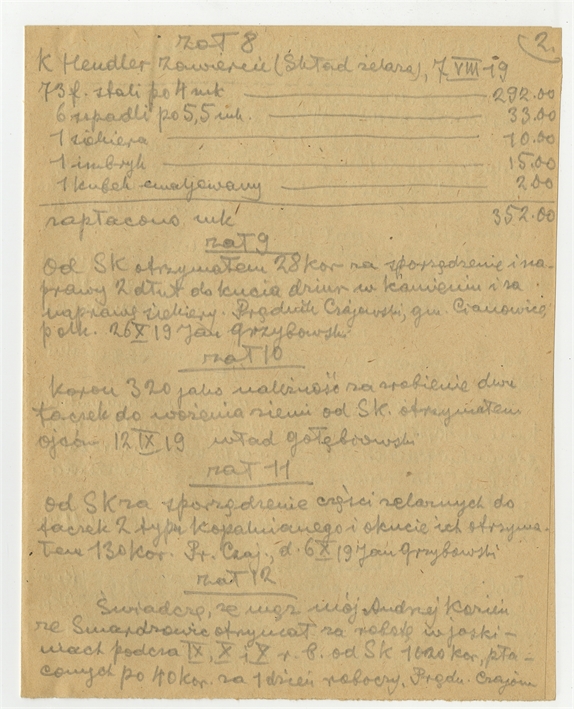 2.
zał 8
K Hendler Zawiercie (Skład żelaza), 7 VIII 19
73 f. stali po 4 mk 292.00
6 szpadli po 5,5 mk. 33.00
1 siekiera 10.00
1 imbryk 15.00
1 kubek emaljowany 2.00
zapłacono mk 352.00
zał 9
Od SK otrzymałem 28 kor za sporządzenie i na-
prawę 2 dłut do kucia dziur w kamieniu i za
naprawę siekiery. Prądnik Czajowski, gm. Cianowice
26 X 19 Jan Grzybowski
zał 10
Koron 320 jako należność za zrobienie dwu
taczek do wożenia ziemi od SK. otrzymałem
Ojców 12 IX 19 Wład Gołębiowski
zał 11
Od SK za sporządzenie części żelaznych do
taczek 2 typu kopalnianego i okucie ich otrzyma-
łem 130 kor. Pr. Czaj., d. 6 X 19 Jan Grzybowski
zał 12
Świadczę, że mąż mój Andrzej Korzeń
ze Smardzowic otrzymał za robotę w jaski-
niach podczas IX, X i X r. b. od SK 1020 kor, pła-
conych po 40 kor. za 1 dzień roboczy. Prądn. Czajow